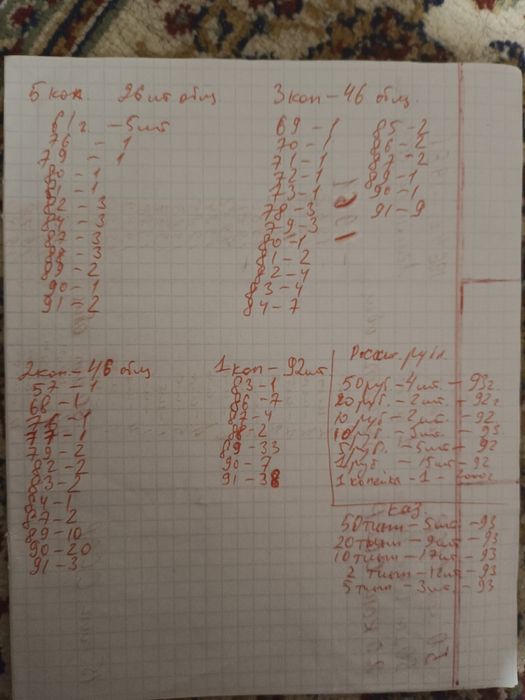 5 коп. 26 шт общ
61г. - 5шт
76 - 1
79 - 1
80 - 1
81 - 1
82 - 3
84 - 3
87 - 3
88 - 3
89 - 2
90 - 1
91 - 2
3 коп - 46 общ.
69 - 1
70 - 1
71 - 1
72 - 1
73 - 1
78 - 3
79 - 3
80 - 1
81 - 2
82 - 4
83 - 4
84 - 7
85 - 2
86 - 2
87 - 2
89 - 1
90 - 1
91 - 9
2 коп - 46 общ
57 - 1
68 - 1
76 - 1
77 - 1
79 - 2
82 - 2
83 - 2
84 - 1
87 - 2
89 - 10
90 - 20
91 - 3
1 коп - 92 шт
83 - 1
86 - 7
87 - 4
88 - 2
89 - 33
90 - 7
91 - 38
рубл.
50 руб - 4 шт - 93г
20 руб. - 2 шт - 92г
10 руб - 2 шт. - 92
10 руб - 3шт - 93
5 руб. - 5шт - 92
1 руб - 15шт - 92
1 копейка - 1 -
каз.
50 тиын - 5шт - 93
20 тиын - 9шт - 93
10 тиын - 17шт - 93
2 тиын - 12шт - 93
5 тиын - 3шт. - 93